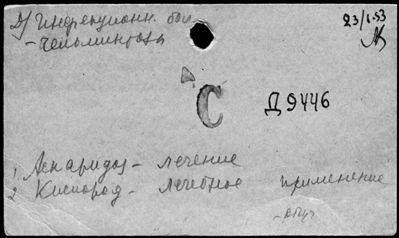 2) Инфекционн. бол. 23/I.53
- гельминтоза
С Д 9446
1. Аскаридоз - лечение
2 Кислород - лечебное применение